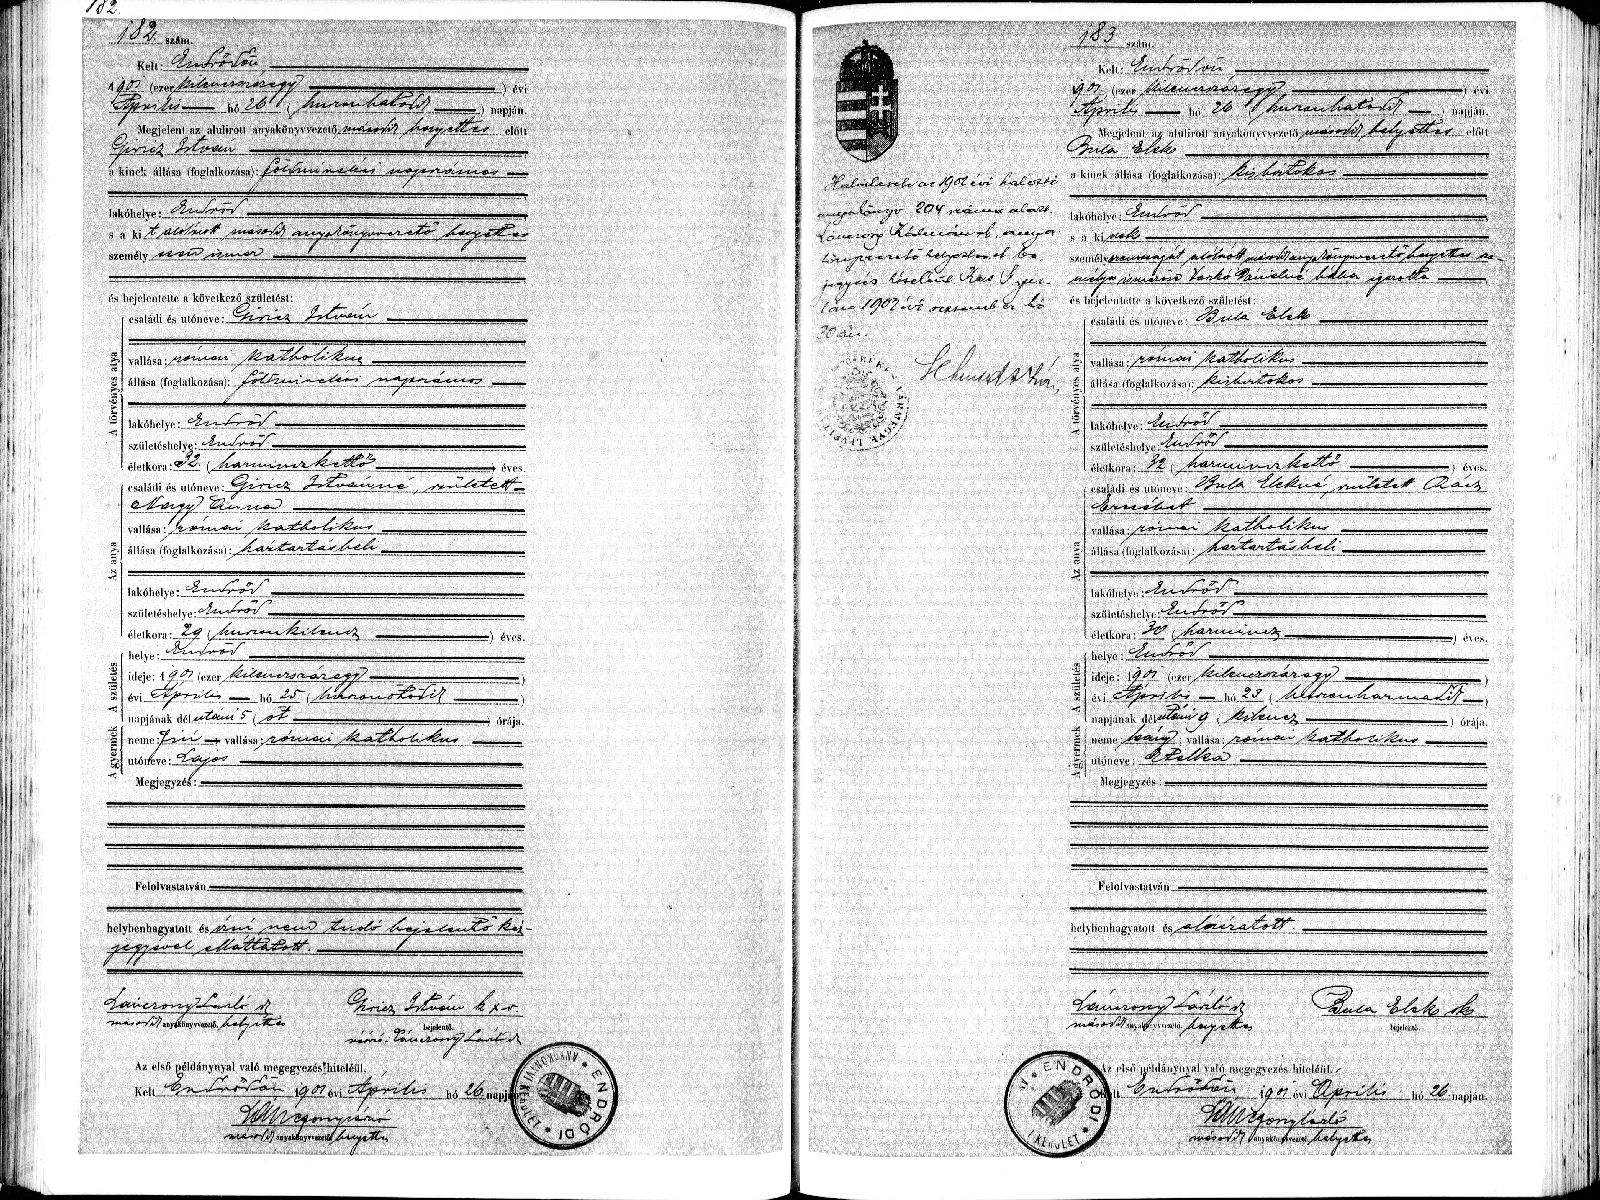 182.
182. szám.
Kelt: Endrődön
1901 (ezer kilenczszázegy) évi
Április hó 26 (huszonhatodik) napján.
Megjelent az alulirott anyakönyvvezető második helyettes előtt
Giricz István
a kinek állása (foglalkozása): földmivelési napszámos
lakóhelye: Endrőd
s a kit alulirott második anyakönyvvezető helyettes
személyesen ismer
és bejelentette a következő születést:
A törvényes atya
családi és utóneve: Giricz István
vallása: római katholikus
állása (foglalkozása): földmivelési napszámos
lakóhelye: Endrőd
születéshelye: Endrőd
életkora: 32 (harminczkettő) éves.
Az anya
családi és utóneve: Giricz Istvánné, született
Nagy Anna
vallása: római katholikus
állása (foglalkozása): háztartásbeli
lakóhelye: Endrőd
születéshelye: Endrőd
életkora: 29 (huszonkilencz) éves.
A születés
helye: Endrőd
ideje: 1901 (ezer kilenczszázegy)
évi Április hó 25 (huszonötödik)
napjának délutáni 5 (öt) órája.
A gyermek
neme: fiú vallása: római katholikus
utóneve: Lajos
Megjegyzés:
Felolvastatván
helybenhagyatott és irni nem tudó bejelentő kéz-
jegyével elláttatott.
Lánczony László sk
második anyakönyvvezető helyettes
Giricz István k x v.
bejelentő.
Lánczony László sk
Az első példánynyal való megegyezés hiteléül.
Kelt Endrődön 1901 évi Április hó 26 napján.
Lánczony László
második anyakönyvvezető helyettes
ENDRŐDI ANYAKÖNYVI KERÜLET
Kas Eszter
1907 évi
204
183 szám.
Kelt: Endrődön
1901 (ezer kilenczszázegy) évi
Április hó 26 (huszonhatodik) napján.
Megjelent az alulirott anyakönyvvezető második helyettes előtt
Bula Elek
a kinek állása (foglalkozása): kisbirtokos
lakóhelye: Endrőd
s a kinek
személyazonosságát alulirott második anyakönyvvezető helyettes sze-
mélyes ismerőse Varkó Dánielné bába igazolta
és bejelentette a következő születést:
A törvényes atya
családi és utóneve: Bula Elek
vallása: római katholikus
állása (foglalkozása): kisbirtokos
lakóhelye: Endrőd
születéshelye: Endrőd
életkora: 32 (harminczkettő) éves.
Az anya
családi és utóneve: Bula Elekné, született Rácz
Erzsébet
vallása: római katholikus
állása (foglalkozása): háztartásbeli
lakóhelye: Endrőd
születéshelye: Endrőd
életkora: 30 (harmincz) éves.
A születés
helye: Endrőd
ideje: 1901 (ezer kilenczszázegy)
évi Április hó 23 (huszonharmadik)
napjának délutáni 9 (kilencz) órája.
A gyermek
neme: leány; vallása: római katholikus
utóneve: Etelka
Megjegyzés:
Felolvastatván
helybenhagyatott és aláiratott.
Lánczony László sk
második anyakönyvvezető helyettes
Bula Elek sk
bejelentő.
Az első példánynyal való megegyezés hiteléül.
Kelt Endrődön 1901 évi Április hó 26 napján.
Lánczony László
második anyakönyvvezető helyettes
ENDRŐDI KERÜLET